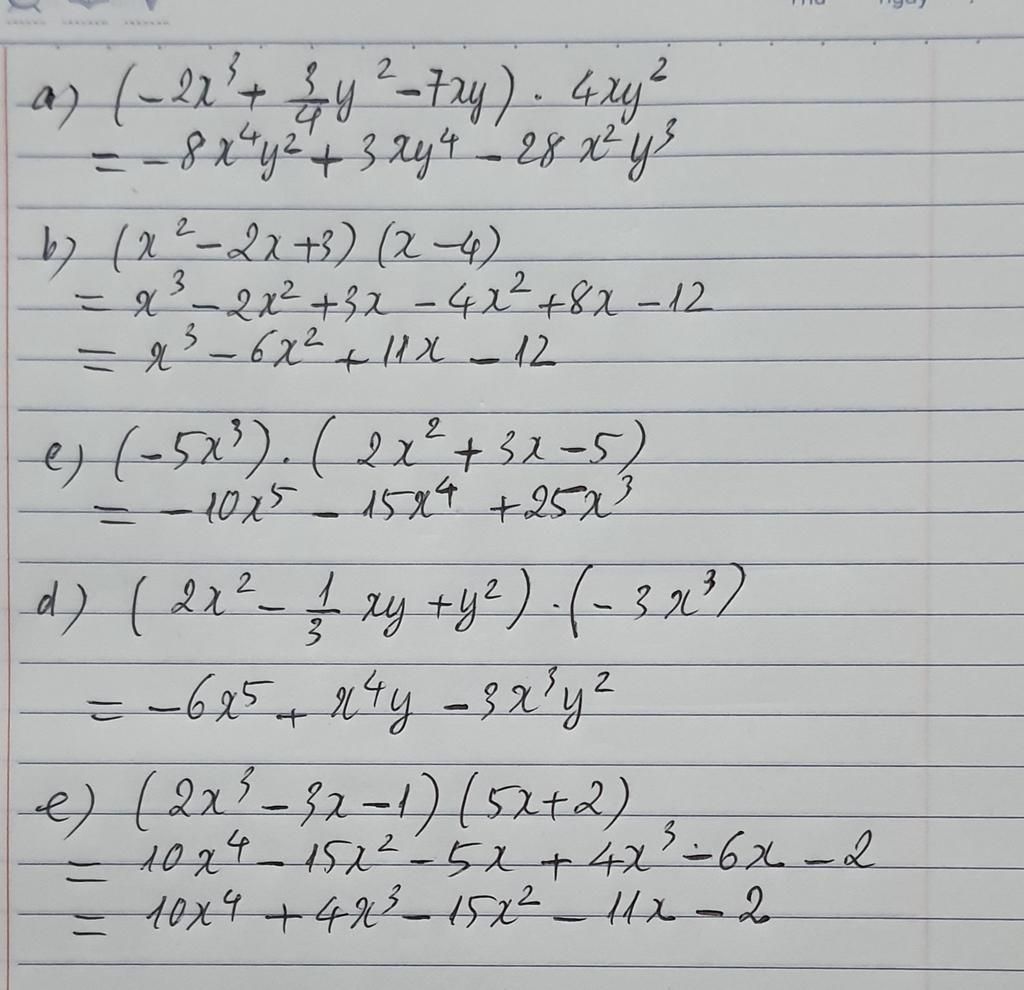 Thứ ngày
a) (-2x³ + 3/4 y² - 7xy) . 4xy²
= -8x⁴y² + 3xy⁴ - 28x²y³
b) (x² - 2x + 3) (x - 4)
= x³ - 2x² + 3x - 4x² + 8x - 12
= x³ - 6x² + 11x - 12
c) (-5x³) . (2x² + 3x - 5)
= -10x⁵ - 15x⁴ + 25x³
d) (2x² - 1/3 xy + y²) . (-3x³)
= -6x⁵ + x⁴y - 3x³y²
e) (2x³ - 3x - 1) (5x + 2)
= 10x⁴ - 15x² - 5x + 4x³ - 6x - 2
= 10x⁴ + 4x³ - 15x² - 11x - 2